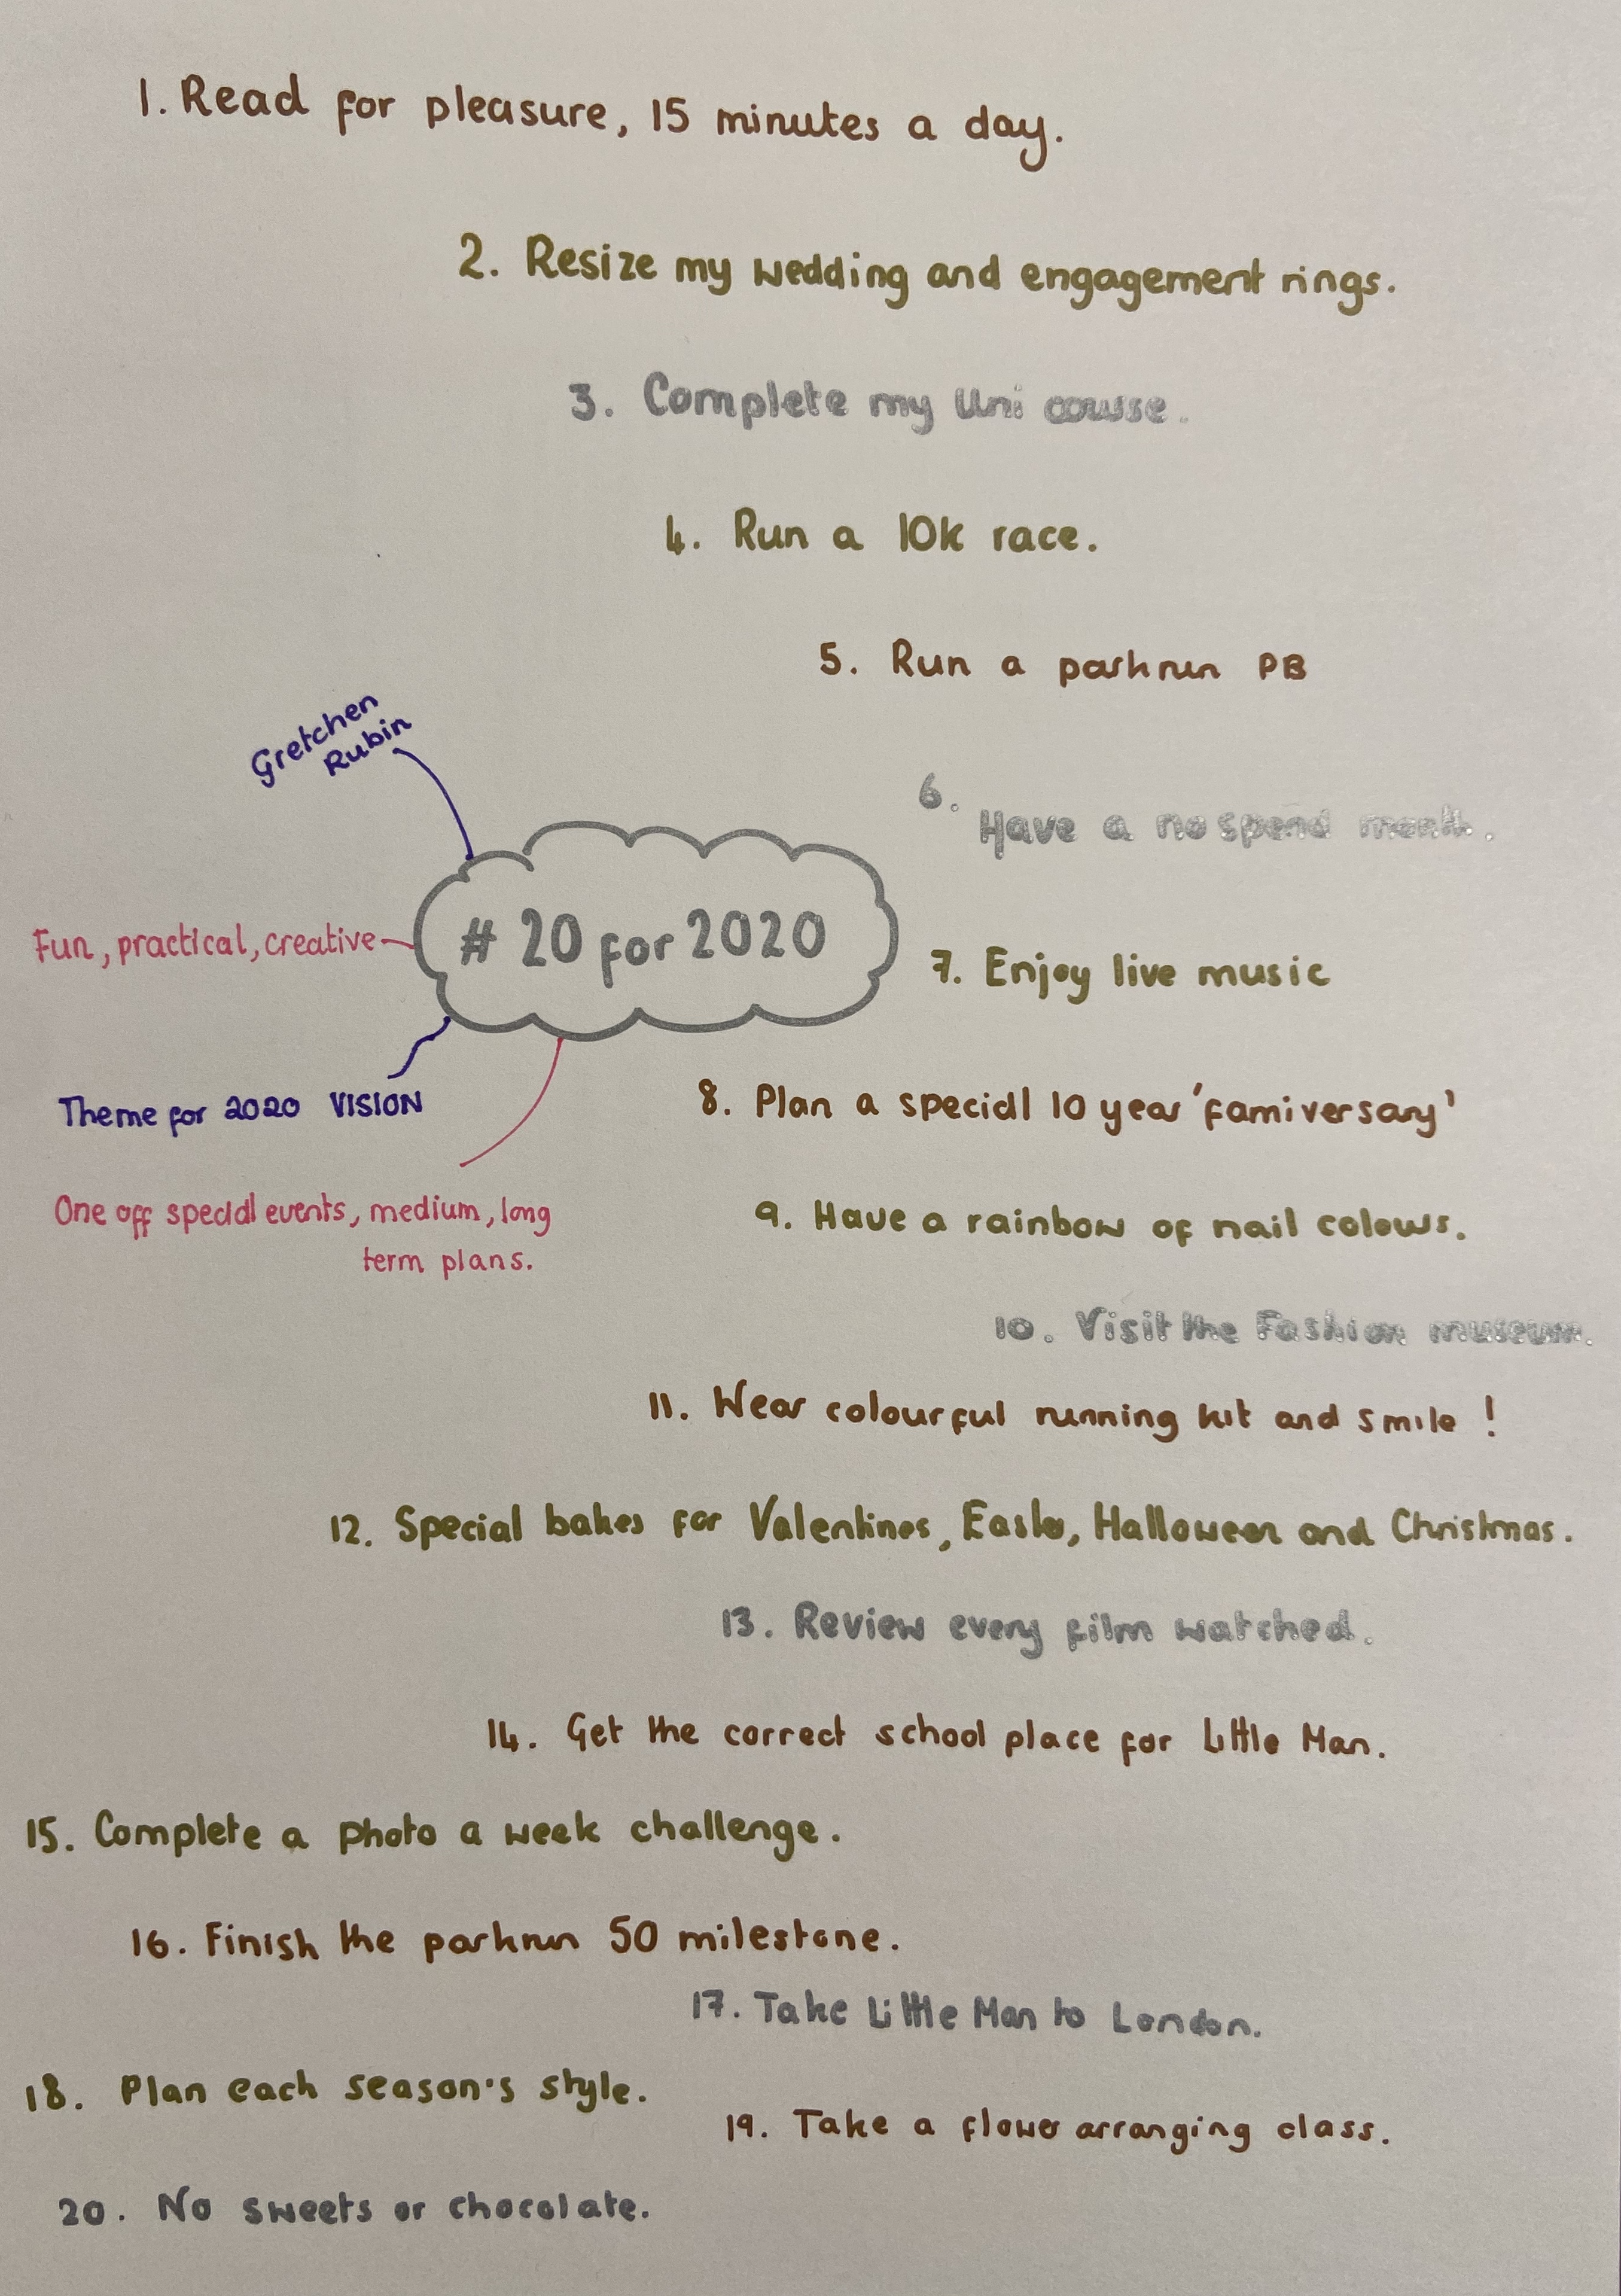 1. Read for pleasure, 15 minutes a day.
2. Resize my wedding and engagement rings.
3. Complete my Uni course.
4. Run a 10k race.
5. Run a parkrun PB
6. Have a no spend month.
Gretchen
Rubin
# 20 for 2020
Fun, practical, creative
7. Enjoy live music
Theme for 2020 VISION
8. Plan a special 10 year 'famiversary'
One off special events, medium, long
term plans.
9. Have a rainbow of nail colours.
10. Visit the Fashion museum.
11. Wear colourful running kit and smile !
12. Special bakes for Valentines, Easter, Halloween and Christmas.
13. Review every film watched.
14. Get the correct school place for Little Man.
15. Complete a photo a week challenge.
16. Finish the parkrun 50 milestone.
17. Take Little Man to London.
18. Plan each season's style.
19. Take a flower arranging class.
20. No sweets or chocolate.